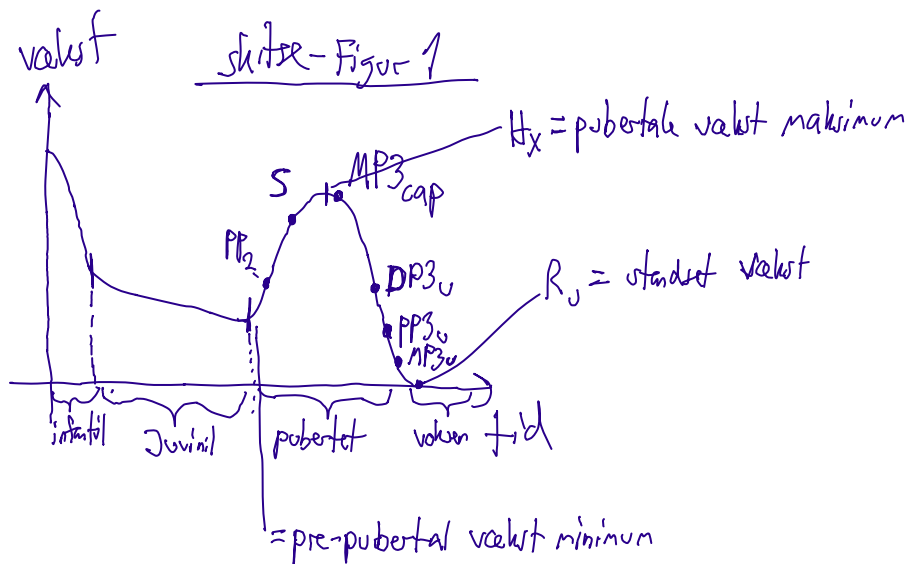 vækst
skitse-Figur 1
Hx = pubertale vækst maksimum
MP3cap
S
PP2
DP3u
Ru = standset vækst
PP3u
MP3u
infantil
Juvinil
pubertet
voksen
tid
= pre-pubertal vækst minimum